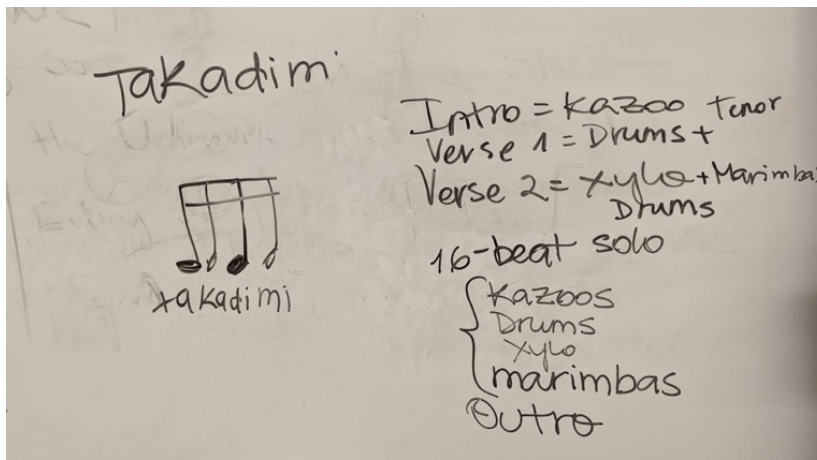 Takadimi
takadimi
Intro = Kazoo Tenor
Verse 1 = Drums +
Verse 2 = Xylo + Marimba
Drums
16-beat solo
Kazoos
Drums
Xylo
marimbas
Outro